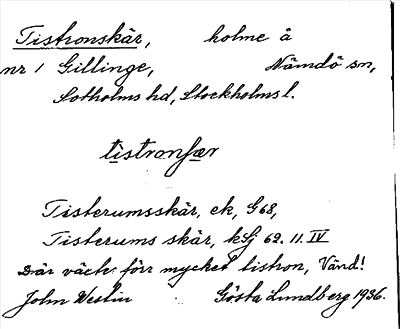 Tistronskär, holme å
nr 1 Gillinge, Nämdö sn,
Sotholms hd, Stockholms l.
tistronʃær
Tisterumsskär, ek, G68,
Tisterums skär, kSj 62. 11. IV
Där växte förr mycket tistron, Vänd!
John Westin Gösta Lundberg 1936.